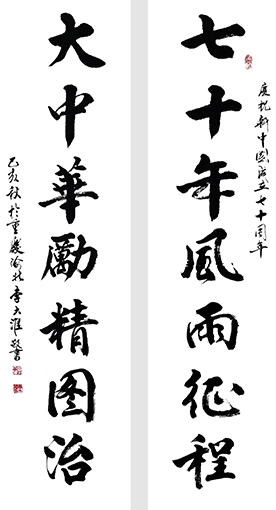 慶祝新中國成立七十周年
七十年風雨征程
大中華勵精图治
己亥秋於重慶渝北李天淮敬書